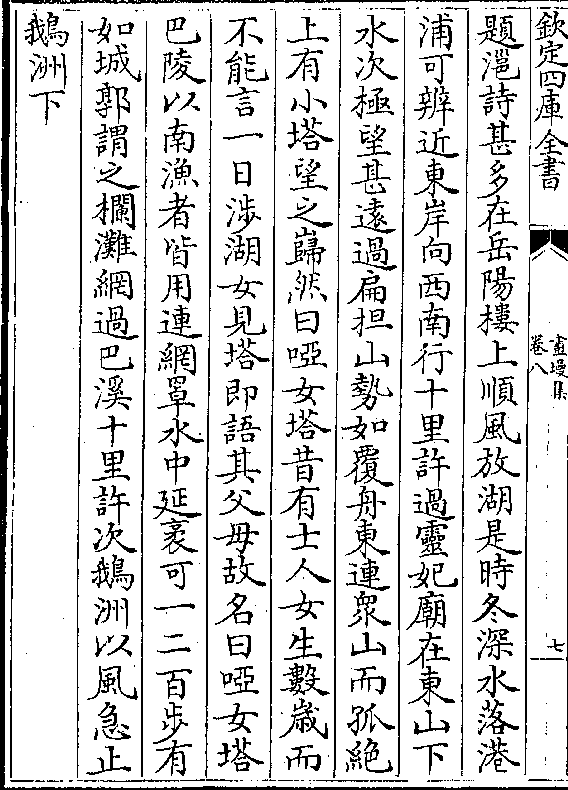 欽定四庫全書
畫墁集
卷八
七
題邕詩甚多在岳陽樓上順風放湖是時冬深水落港
浦可辨近東岸向西南行十里許過靈妃廟在東山下
水次極望甚遠過扁担山勢如覆舟東連衆山而孤絶
上有小塔望之巋然曰啞女塔昔有士人女生數歲而
不能言一日涉湖女見塔即語其父母故名曰啞女塔
巴陵以南漁者皆用連網罩水中延袤可一二百步有
如城郭謂之欄灘網過巴溪十里許次鵝洲以風急止
鵝洲下